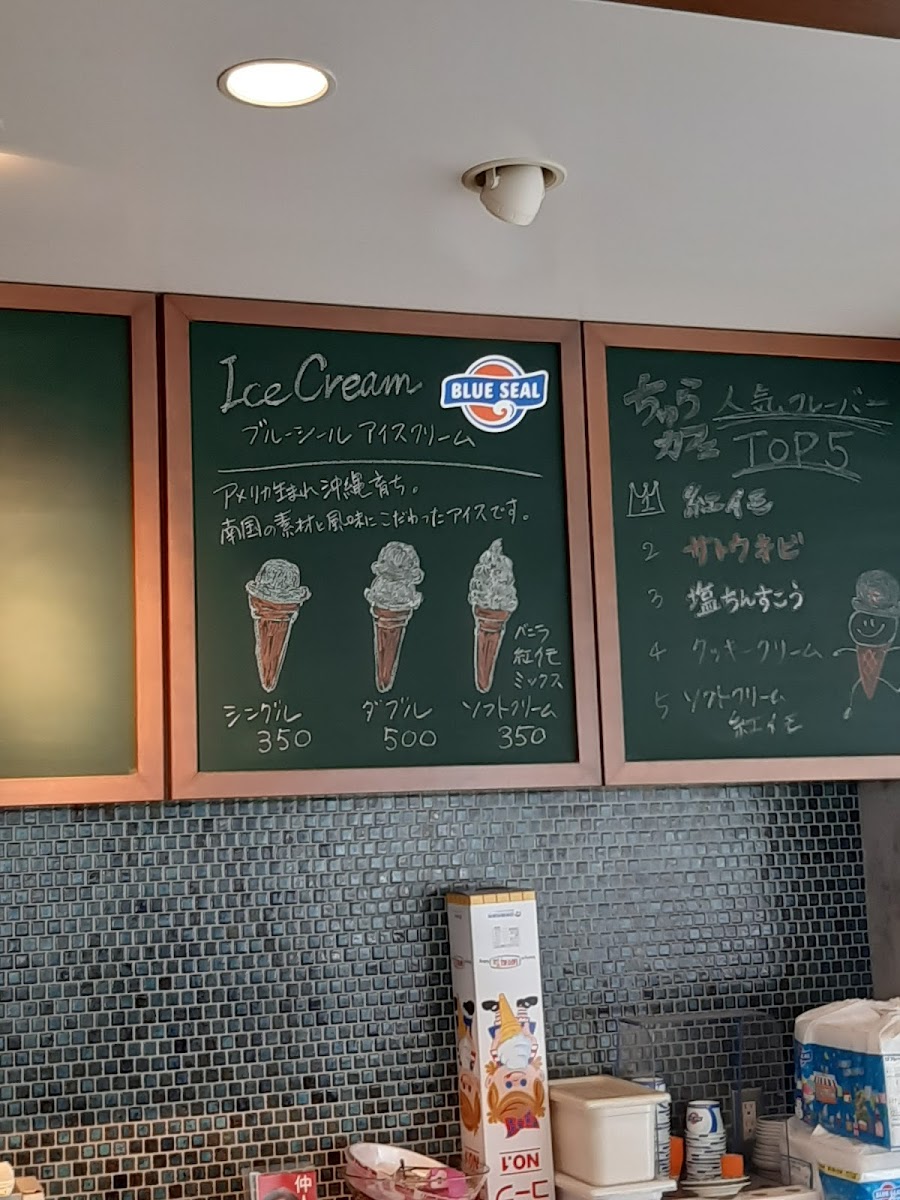 Ice Cream
BLUE SEAL
ブルーシール アイスクリーム
アメリカ生まれ沖縄育ち。
南国の素材と風味にこだわったアイスです。
バニラ
紅イモ
ミックス
シングル
350
ダブル
500
ソフトクリーム
350
ちゅら
カフェ
人気フレーバー
TOP5
1 紅イモ
2 サトウキビ
3 塩ちんすこう
4 クッキークリーム
5 ソフトクリーム
紅イモ
NO.1
コーン
仲
BLUE SEAL